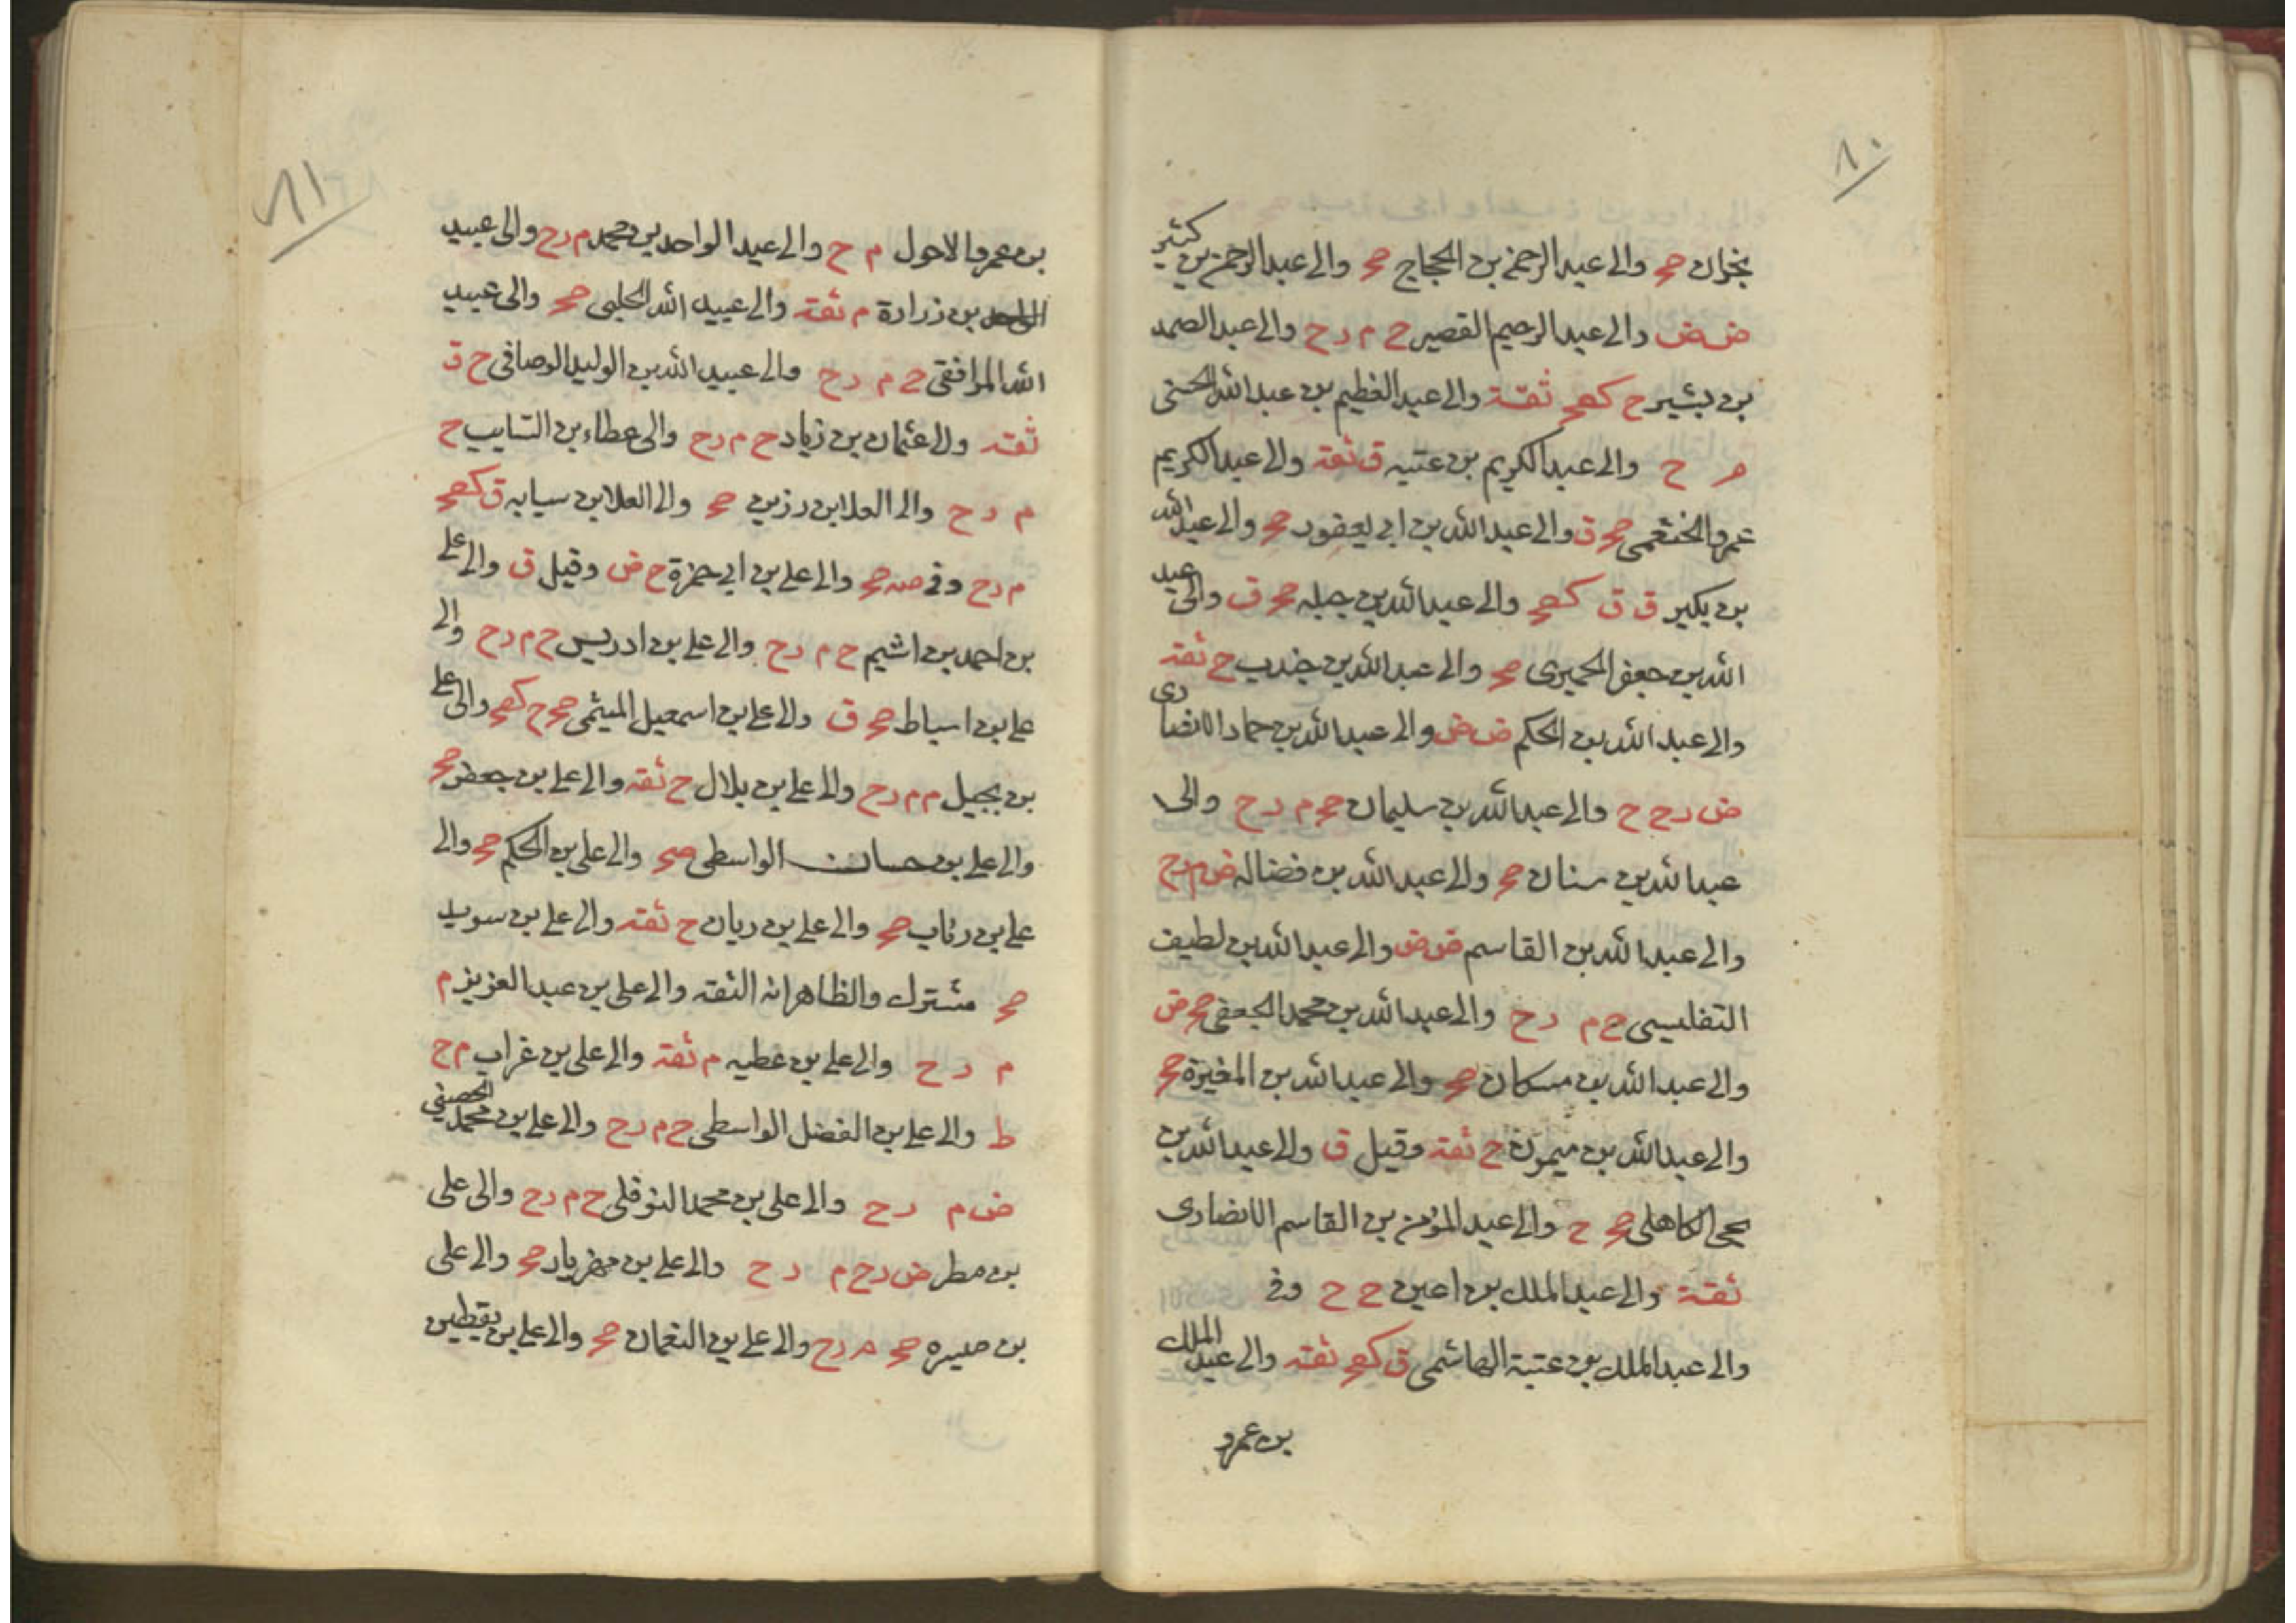 ٨٠
نجران صح والى عبد الرحمن بن الحجاج صح والى عبد الرحمن بن كثير
ض ض والى عبد الرحيم القصير ح م ر ح والى عبد الصمد
بن بشير ح كصح ثقة والى عبد العظيم بن عبد الله الحسنى
م ح والى عبد الكريم بن عتبه ق ثقه والى عبد الكريم
عمرو الخثعمى صح ق والى عبد الله بن ابى يعفور صح والى عبد الله
بن بكير ق ق كصح والى عبد الله بن جبله صح ق والى عبد
الله بن جعفر الحميرى صح والى عبد الله بن جندب ح ثقه
والى عبد الله بن الحكم ض ض والى عبد الله بن حماد الانصارى
ض ر ح ح والى عبد الله بن سليمان صح م ر ح والى
عبد الله بن سنان صح والى عبد الله بن فضاله ض م ر ح
والى عبد الله بن القاسم ض ض والى عبد الله بن لطيف
التفليسى ح م ر ح والى عبد الله بن محمد الجعفى صح ض
والى عبد الله بن مسكان صح والى عبد الله بن المغيرة صح
والى عبد الله بن ميمون ح ثقه وقيل ق والى عبد الله بن
يحى الكاهلى صح ح والى عبد المؤمن بن القاسم الانصارى
ثقة والى عبد الملك بن اعين ح ح وفى
والى عبد الملك بن عتبة الهاشمى ق كصح ثقه والى عبد الملك
بن عمرو
٨١
بن عمرو الاحول م ح والى عبد الواحد بن محمد م ر ح والى عبيد
بن زرارة م ثقه والى عبيد الله الحلبى صح والى عبيد
الله المرافقى ح م ر ح والى عبيد الله بن الوليد الوصافى ح ق
ثقه والى عثمان بن زياد ح م ر ح والى عطاء بن السايب ح
م ر ح والى العلا بن رزين صح والى العلا بن سيابه ق كصح
م ر ح وفى صه صح والى على بن ابى حمزة ح ض وقيل ق والى على
بن احمد بن اشيم ح م ر ح والى على بن ادريس ح م ر ح والى
على بن اسباط صح ق والى على بن اسمعيل الميثمى صح ح كصح والى على
بن بجيل م م ر ح والى على بن بلال ح ثقه والى على بن جعفر صح
والى على بن حسان الواسطى صح والى على بن الحكم صح والى
على بن رئاب صح والى على بن ريان ح ثقه والى على بن سويد
صح مشترك والظاهر انه الثقه والى على بن عبد العزيز م
م ر ح والى على بن عطيه م ثقه والى على بن غراب م ح
ط والى على بن الفضل الواسطى ح م ر ح والى على بن محمد الحصينى
ض م ر ح والى على بن محمد النوفلى ح م ر ح والى على
بن مطر ض ر ح م ر ح والى على بن مهزيار صح والى على
بن ميسره صح م ر ح والى على بن النعمان صح والى على بن يقطين